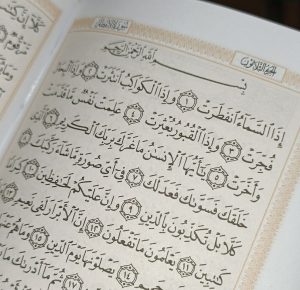 الجزء الثلاثون
سورة الانفطار
بِسْمِ ٱللَّهِ ٱلرَّحْمَٰنِ ٱلرَّحِيمِ
إِذَا ٱلسَّمَآءُ ٱنفَطَرَتْ ١ وَإِذَا ٱلْكَوَاكِبُ ٱنتَثَرَتْ ٢ وَإِذَا ٱلْبِحَارُ
فُجِّرَتْ ٣ وَإِذَا ٱلْقُبُورُ بُعْثِرَتْ ٤ عَلِمَتْ نَفْسٌ مَّا قَدَّمَتْ
وَأَخَّرَتْ ٥ يَٰٓأَيُّهَا ٱلْإِنسَٰنُ مَا غَرَّكَ بِرَبِّكَ ٱلْكَرِيمِ ٦ ٱلَّذِى
خَلَقَكَ فَسَوَّىٰكَ فَعَدَلَكَ ٧ فِىٓ أَىِّ صُورَةٍ مَّا شَآءَ رَكَّبَكَ ٨
كَلَّا بَلْ تُكَذِّبُونَ بِٱلدِّينِ ٩ وَإِنَّ عَلَيْكُمْ لَحَٰفِظِينَ ١٠ كِرَامًا
كَٰتِبِينَ ١١ يَعْلَمُونَ مَا تَفْعَلُونَ ١٢ إِنَّ ٱلْأَبْرَارَ لَفِى نَعِيمٍ ١٣
جَحِيمٍ ١٤ يَصْلَوْنَهَا يَوْمَ ٱلدِّينِ ١٥ وَمَا هُمْ
١٧ ثُمَّ مَآ أَدْرَىٰكَ مَا